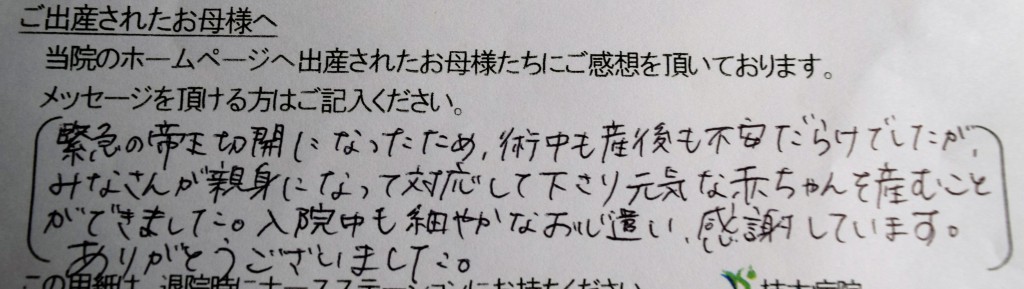 ご出産されたお母様へ
当院のホームページへ出産されたお母様たちにご感想を頂いております。
メッセージを頂ける方はご記入ください。
緊急の帝王切開になったため、術中も産後も不安だらけでしたが、
みなさんが親身になって対応して下さり元気な赤ちゃんを産むこと
ができました。入院中も細やかなお心遣い、感謝しています。
ありがとうございました。
この用紙は、退院時にナースステーションにお持ちください